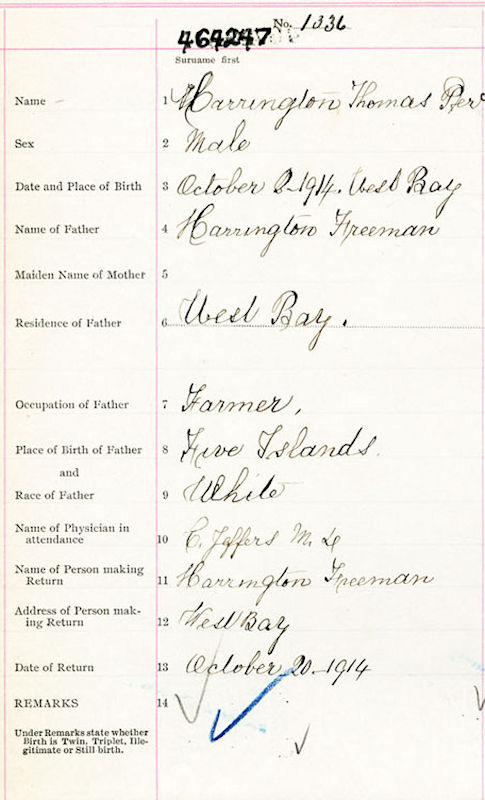 No. 1336
464247
Surname first
Name 1 Harrington Thomas
Sex 2 Male
Date and Place of Birth 3 October 8-1914. West Bay
Name of Father 4 Harrington Freeman
Maiden Name of Mother 5
Residence of Father 6 West Bay.
Occupation of Father 7 Farmer,
Place of Birth of Father 8 Five Islands.
and
Race of Father 9 White
Name of Physician in
attendance 10 C. Jeffers M.
Name of Person making
Return 11 Harrington Freeman
Address of Person mak-
ing Return 12 West Bay
Date of Return 13 October 20-1914
REMARKS 14
Under Remarks state whether
Birth is Twin, Triplet, Ille-
gitimate or Still birth.